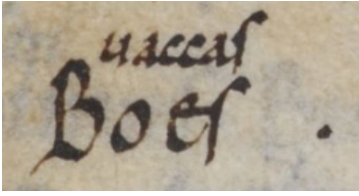 uaccas
Boes .